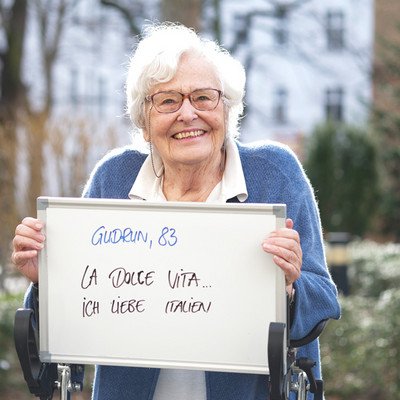 GUDRUN, 83
LA DOLCE VITA...
ICH LIEBE ITALIEN